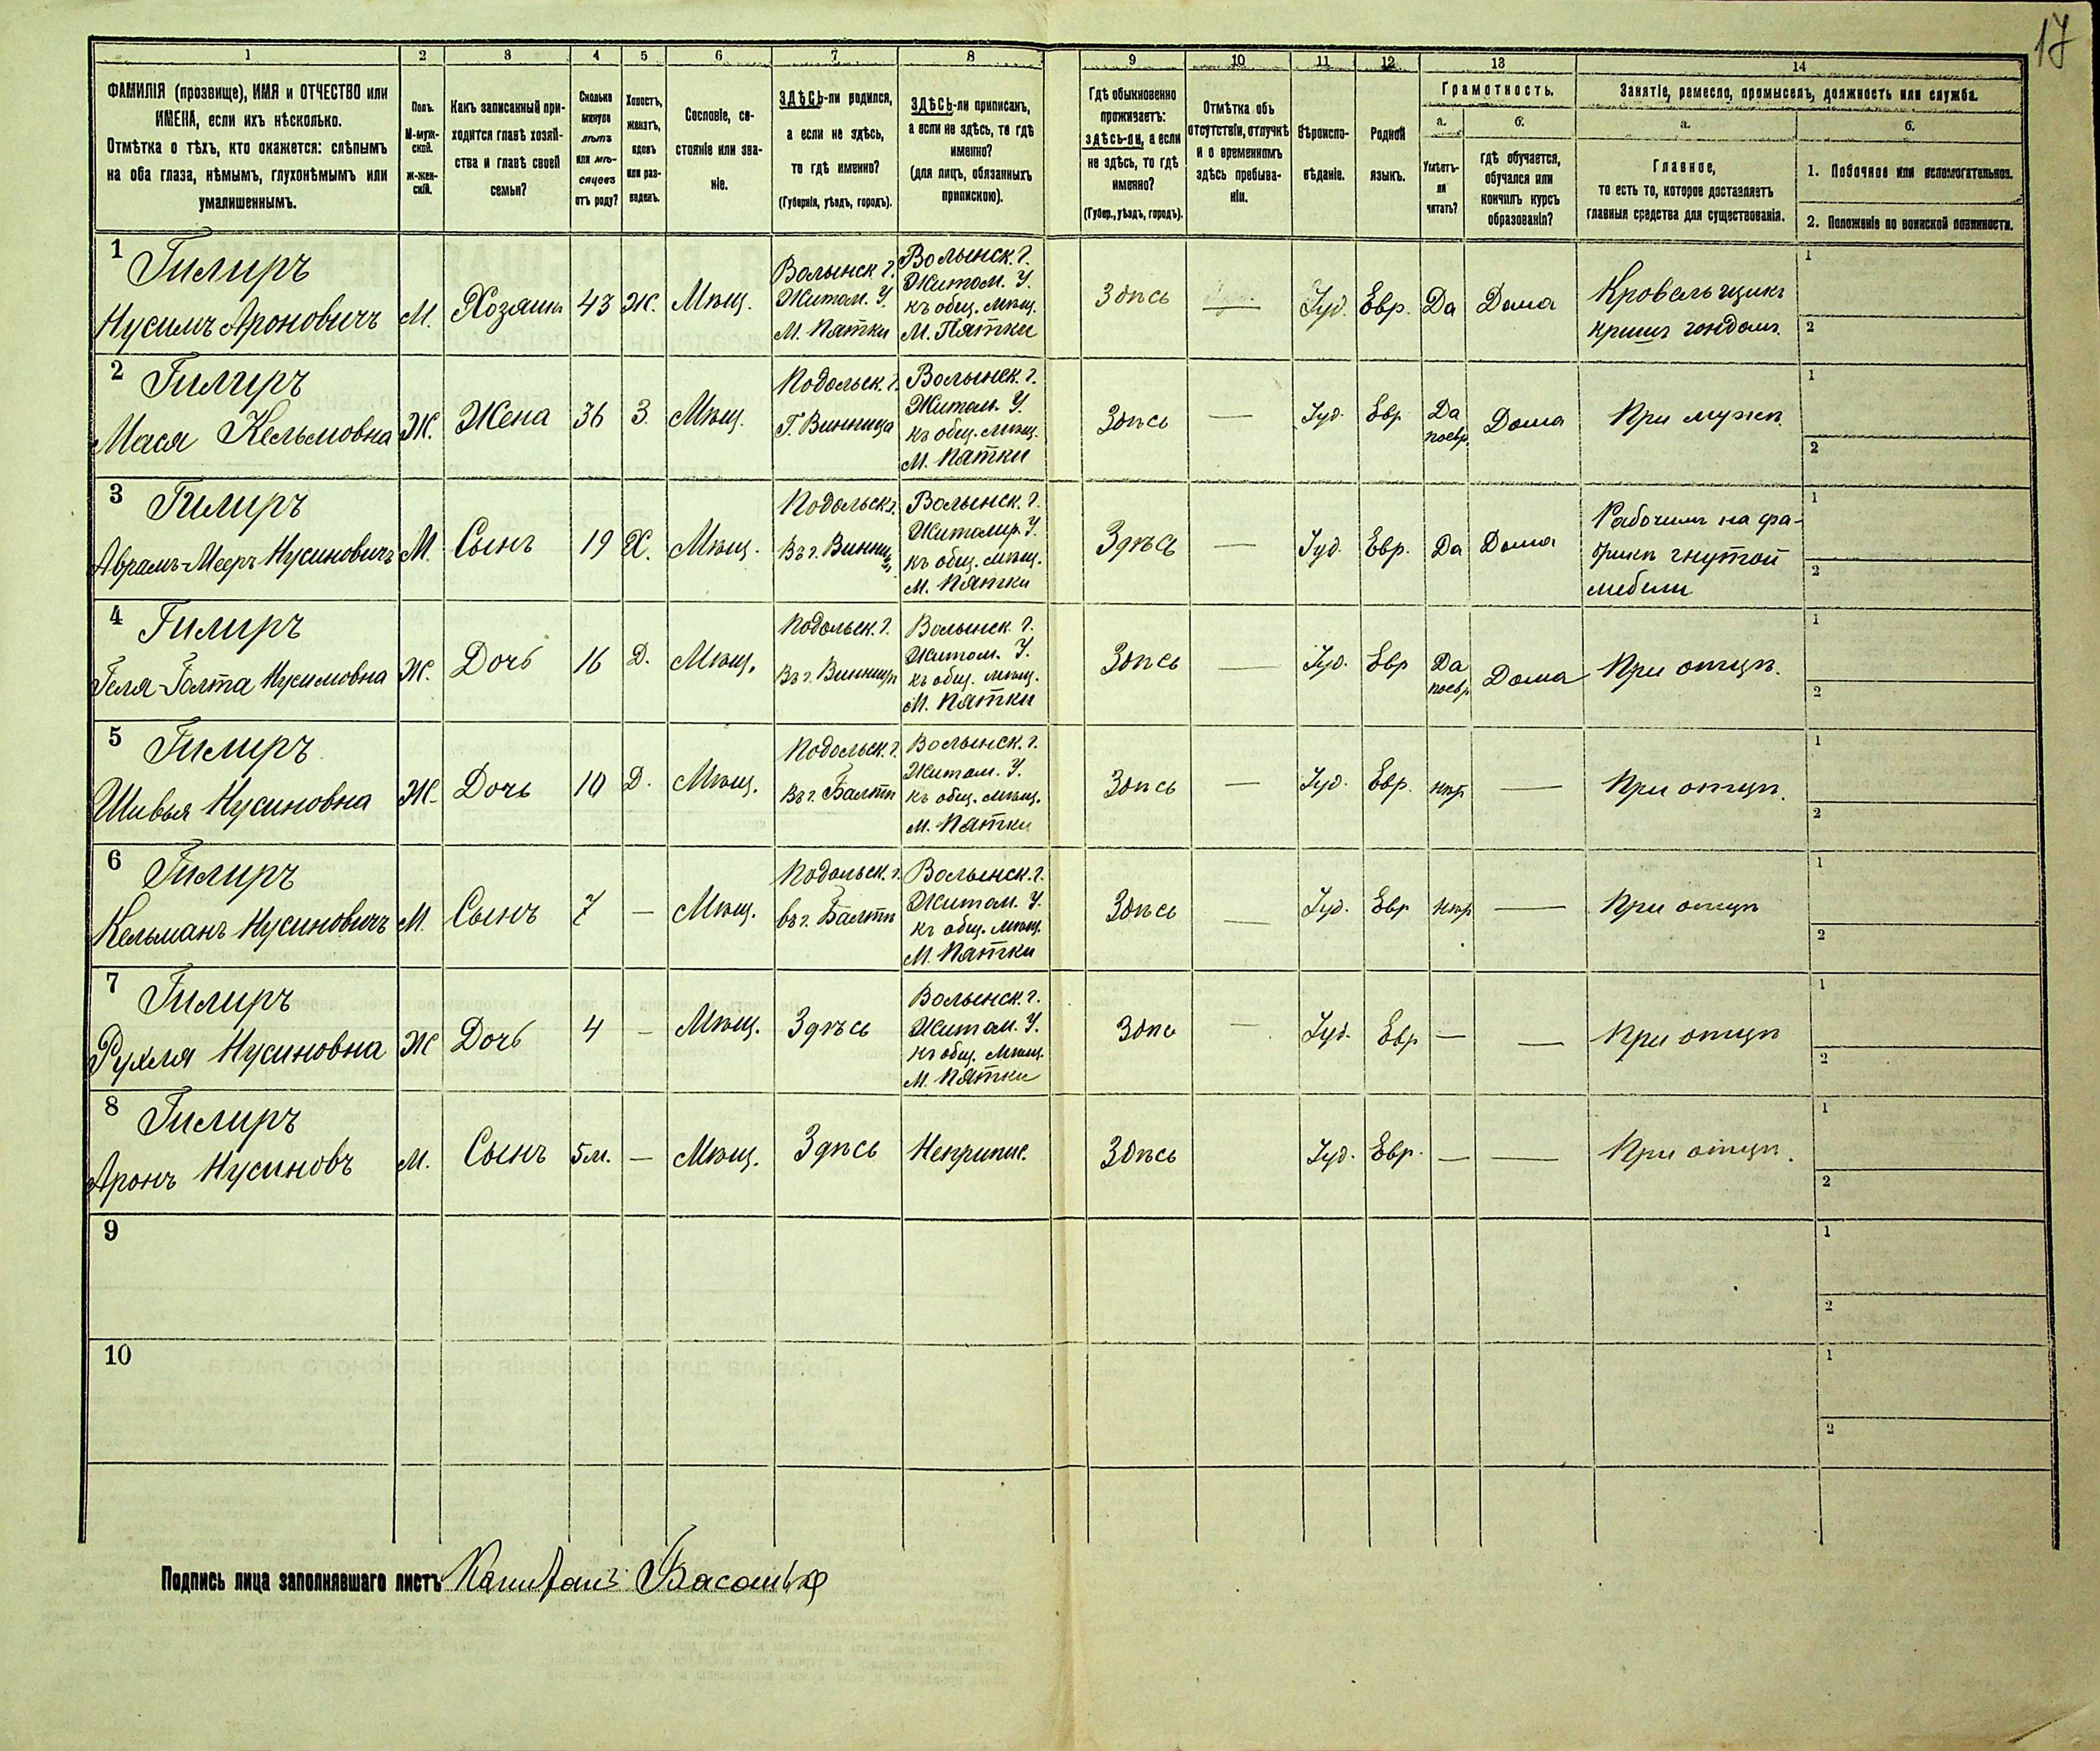 17
1 2 3 4 5 6 7 8 9 10 11 12 13 14
ФАМИЛІЯ (прозвище), ИМЯ и ОТЧЕСТВО или
ИМЕНА, если ихъ нѣсколько.
Отмѣтка о тѣхъ, кто окажется: слѣпымъ
на оба глаза, нѣмымъ, глухонѣмымъ или
умалишеннымъ.
Полъ.
М-муж-
ской.
Ж-жен-
скій.
Какъ записанный при-
ходится главѣ хозяй-
ства и главѣ своей
семьи?
Сколько
минуло
лѣтъ
или мѣ-
сяцевъ
отъ роду?
Холостъ,
женатъ,
вдовъ
или раз-
веденъ.
Сословіе, со-
стояніе или зва-
ніе.
ЗДѢСЬ-ли родился,
а если не здѣсь,
то гдѣ именно?
(Губернія, уѣздъ, городъ).
ЗДѢСЬ-ли приписанъ,
а если не здѣсь, то гдѣ
именно?
(для лицъ, обязанныхъ
припискою).
Гдѣ обыкновенно
проживаетъ:
здѣсь-ли, а если
не здѣсь, то гдѣ
именно?
(Губер., уѣздъ, городъ).
Отмѣтка объ
отсутствіи, отлучкѣ
и о временномъ
здѣсь пребыва-
ніи.
Вѣроиспо-
вѣданіе.
Родной
языкъ.
Грамотность.
а.
Умѣетъ-
ли
читать?
б.
гдѣ обучается,
обучался или
кончилъ курсъ
образованія?
Занятіе, ремесло, промыселъ, должность или служба.
а.
Главное,
то есть то, которое доставляетъ
главныя средства для существованія.
б.
1. Побочное или вспомогательное.
2. Положеніе по воинской повинности.
1
Гилиръ
Нусимъ Ароновичъ
М.
Хозяинъ
43
Ж.
Мѣщ.
Волынск. г.
Житом. У.
М. Пятки
Волынск. г.
Житом. У.
къ общ. мѣщ.
М. Пятки
Здѣсь
—
Іуд.
Евр.
Да
Дома
Кровельщикъ
1
2
2
Гилиръ
Мася Кельмовна
Ж.
Жена
36
З.
Мѣщ.
Подольск. г.
Г. Винница
Волынск. г.
Житом. У.
къ общ. мѣщ.
М. Пятки
Здѣсь
—
Іуд.
Евр
Да
поевр.
Дома
При мужѣ.
1
2
3
Гилиръ
Аврамъ-Мееръ Нусиновичъ
М.
Сынъ
19
Х.
Мѣщ.
Подольск. г.
Въ г. Винни
цѣ
Волынск. г.
Житомир. У.
къ общ. мѣщ.
М. Пятки
Здѣсь
—
Іуд.
Евр.
Да
Дома
Рабочимъ на фа-
брикѣ гнутой
мебели
1
2
4
Гилиръ
Геля-Голта Нусимовна
Ж.
Дочь
16
Д.
Мѣщ.
Подольск. г.
Въ г. Винницѣ
Волынск. г.
Житом. У.
къ общ. мѣщ.
М. Пятки
Здѣсь
—
Іуд.
Евр
Да
поевр.
Дома
При отцѣ.
1
2
5
Гилиръ
Шивья Нусиновна
Ж.
Дочь
10
Д.
Мѣщ.
Подольск. г.
Въ г. Балтѣ
Волынск. г.
Житом. У.
къ общ. мѣщ.
М. Пятки
Здѣсь
—
Іуд.
Евр.
нѣт
—
При отцѣ.
1
2
6
Гилиръ
Кельманъ Нусиновичъ
М.
Сынъ
7
—
Мѣщ.
Подольск. г.
въ г. Балтѣ
Волынск. г.
Житом. У.
къ общ. мѣщ.
М. Пятки
Здѣсь
—
Іуд.
Евр
нѣт
—
При отцѣ
1
2
7
Гилиръ
Рухля Нусиновна
Ж
Дочь
4
—
Мѣщ.
Здѣсь
Волынск. г.
Житом. У.
къ общ. мѣщ.
М. Пятки
Здѣсь
—
Іуд.
Евр
—
—
При отцѣ
1
2
8
Гилиръ
Аронъ Нусиновъ
М.
Сынъ
5м.
—
Мѣщ.
Здѣсь
Неприпис.
Здѣсь
Іуд.
Евр.
—
—
При отцѣ.
1
2
9
1
2
10
1
2
Подпись лица заполнявшаго листъ Капитанъ